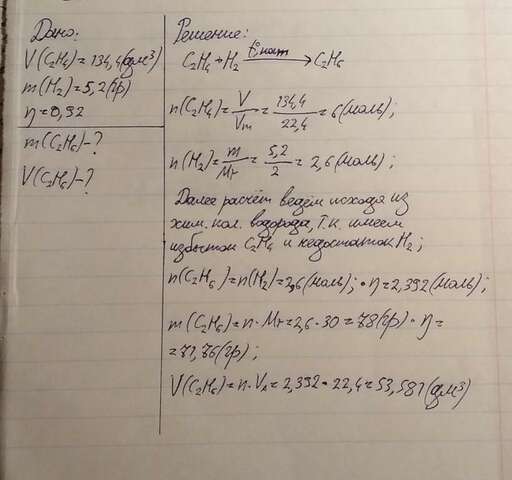 Дано:
V(C₂H₄)=134,4(дм³)
m(H₂)=5,2(гр)
η=0,92
m(C₂H₆)-?
V(C₂H₆)-?
Решение:
C₂H₄+H₂ →(t°, кат) C₂H₆
n(C₂H₄)=V/Vm=134,4/22,4=6(моль);
n(H₂)=m/Mr=5,2/2=2,6(моль);
Далее расчёт ведём исходя из
хим. кол. водорода, т.к. имеем
избыток C₂H₄ и недостаток H₂;
n(C₂H₆)=n(H₂)=2,6(моль);·η=2,392(моль);
m(C₂H₆)=n·Mr=2,6·30=78(гр)·η=
=71,76(гр);
V(C₂H₆)=n·Vm=2,392·22,4=53,581(дм³)